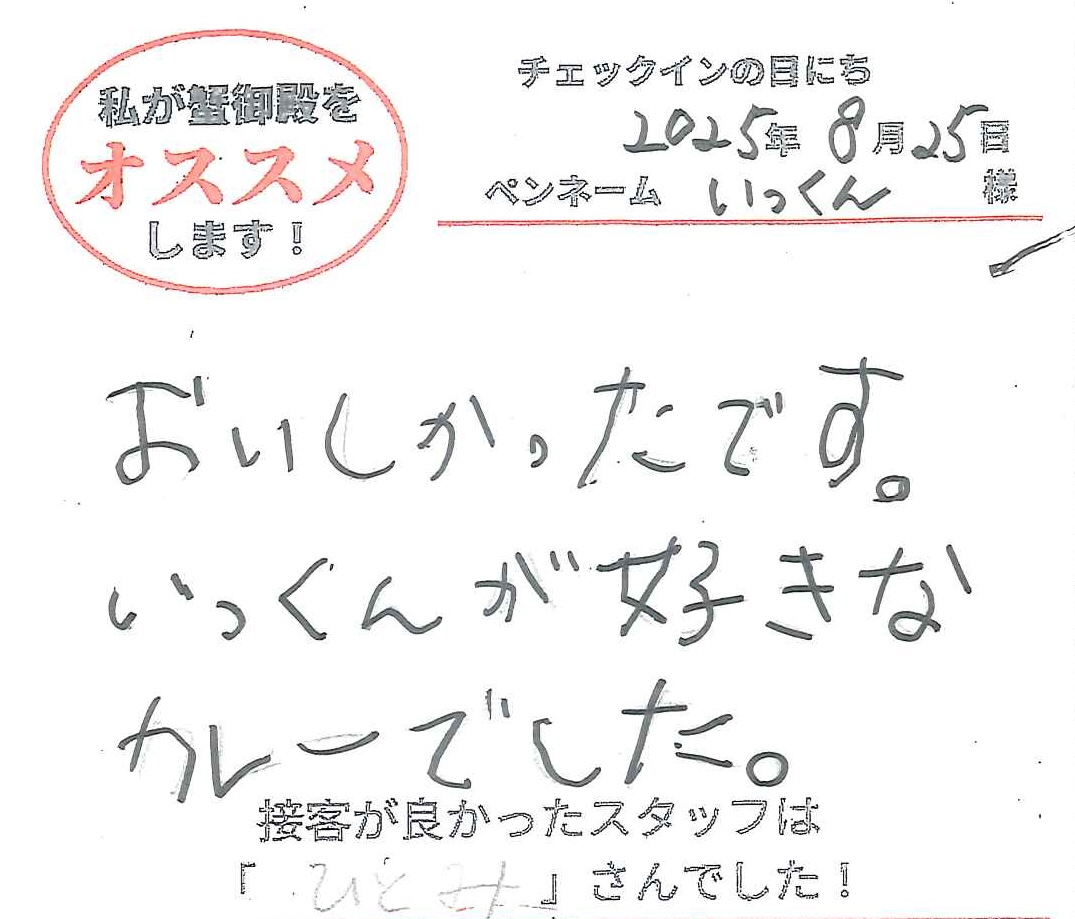 私が蟹御殿を
オススメ
します！
チェックインの日にち
2025年 8月25日
ペンネーム いっくん 様
おいしかったです。
いっくんが好きな
カレーでした。
接客が良かったスタッフは
「 ひとみ 」さんでした！